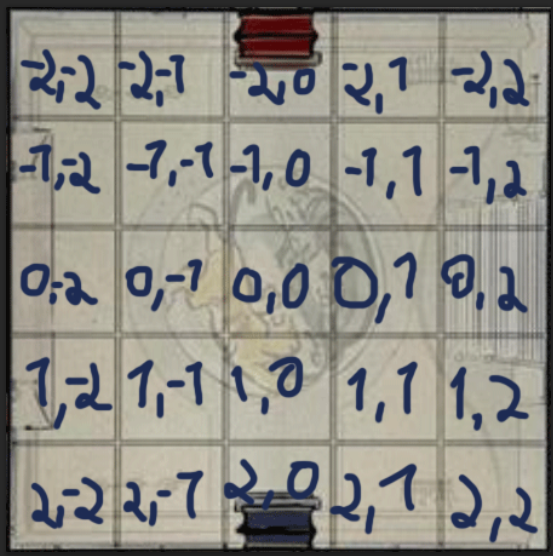 -2,-2 -2,-1 -2,0 -2,1 -2,2
-1,-2 -1,-1 -1,0 -1,1 -1,2
0,-2 0,-1 0,0 0,1 0,2
1,-2 1,-1 1,0 1,1 1,2
2,-2 2,-1 2,0 2,1 2,2